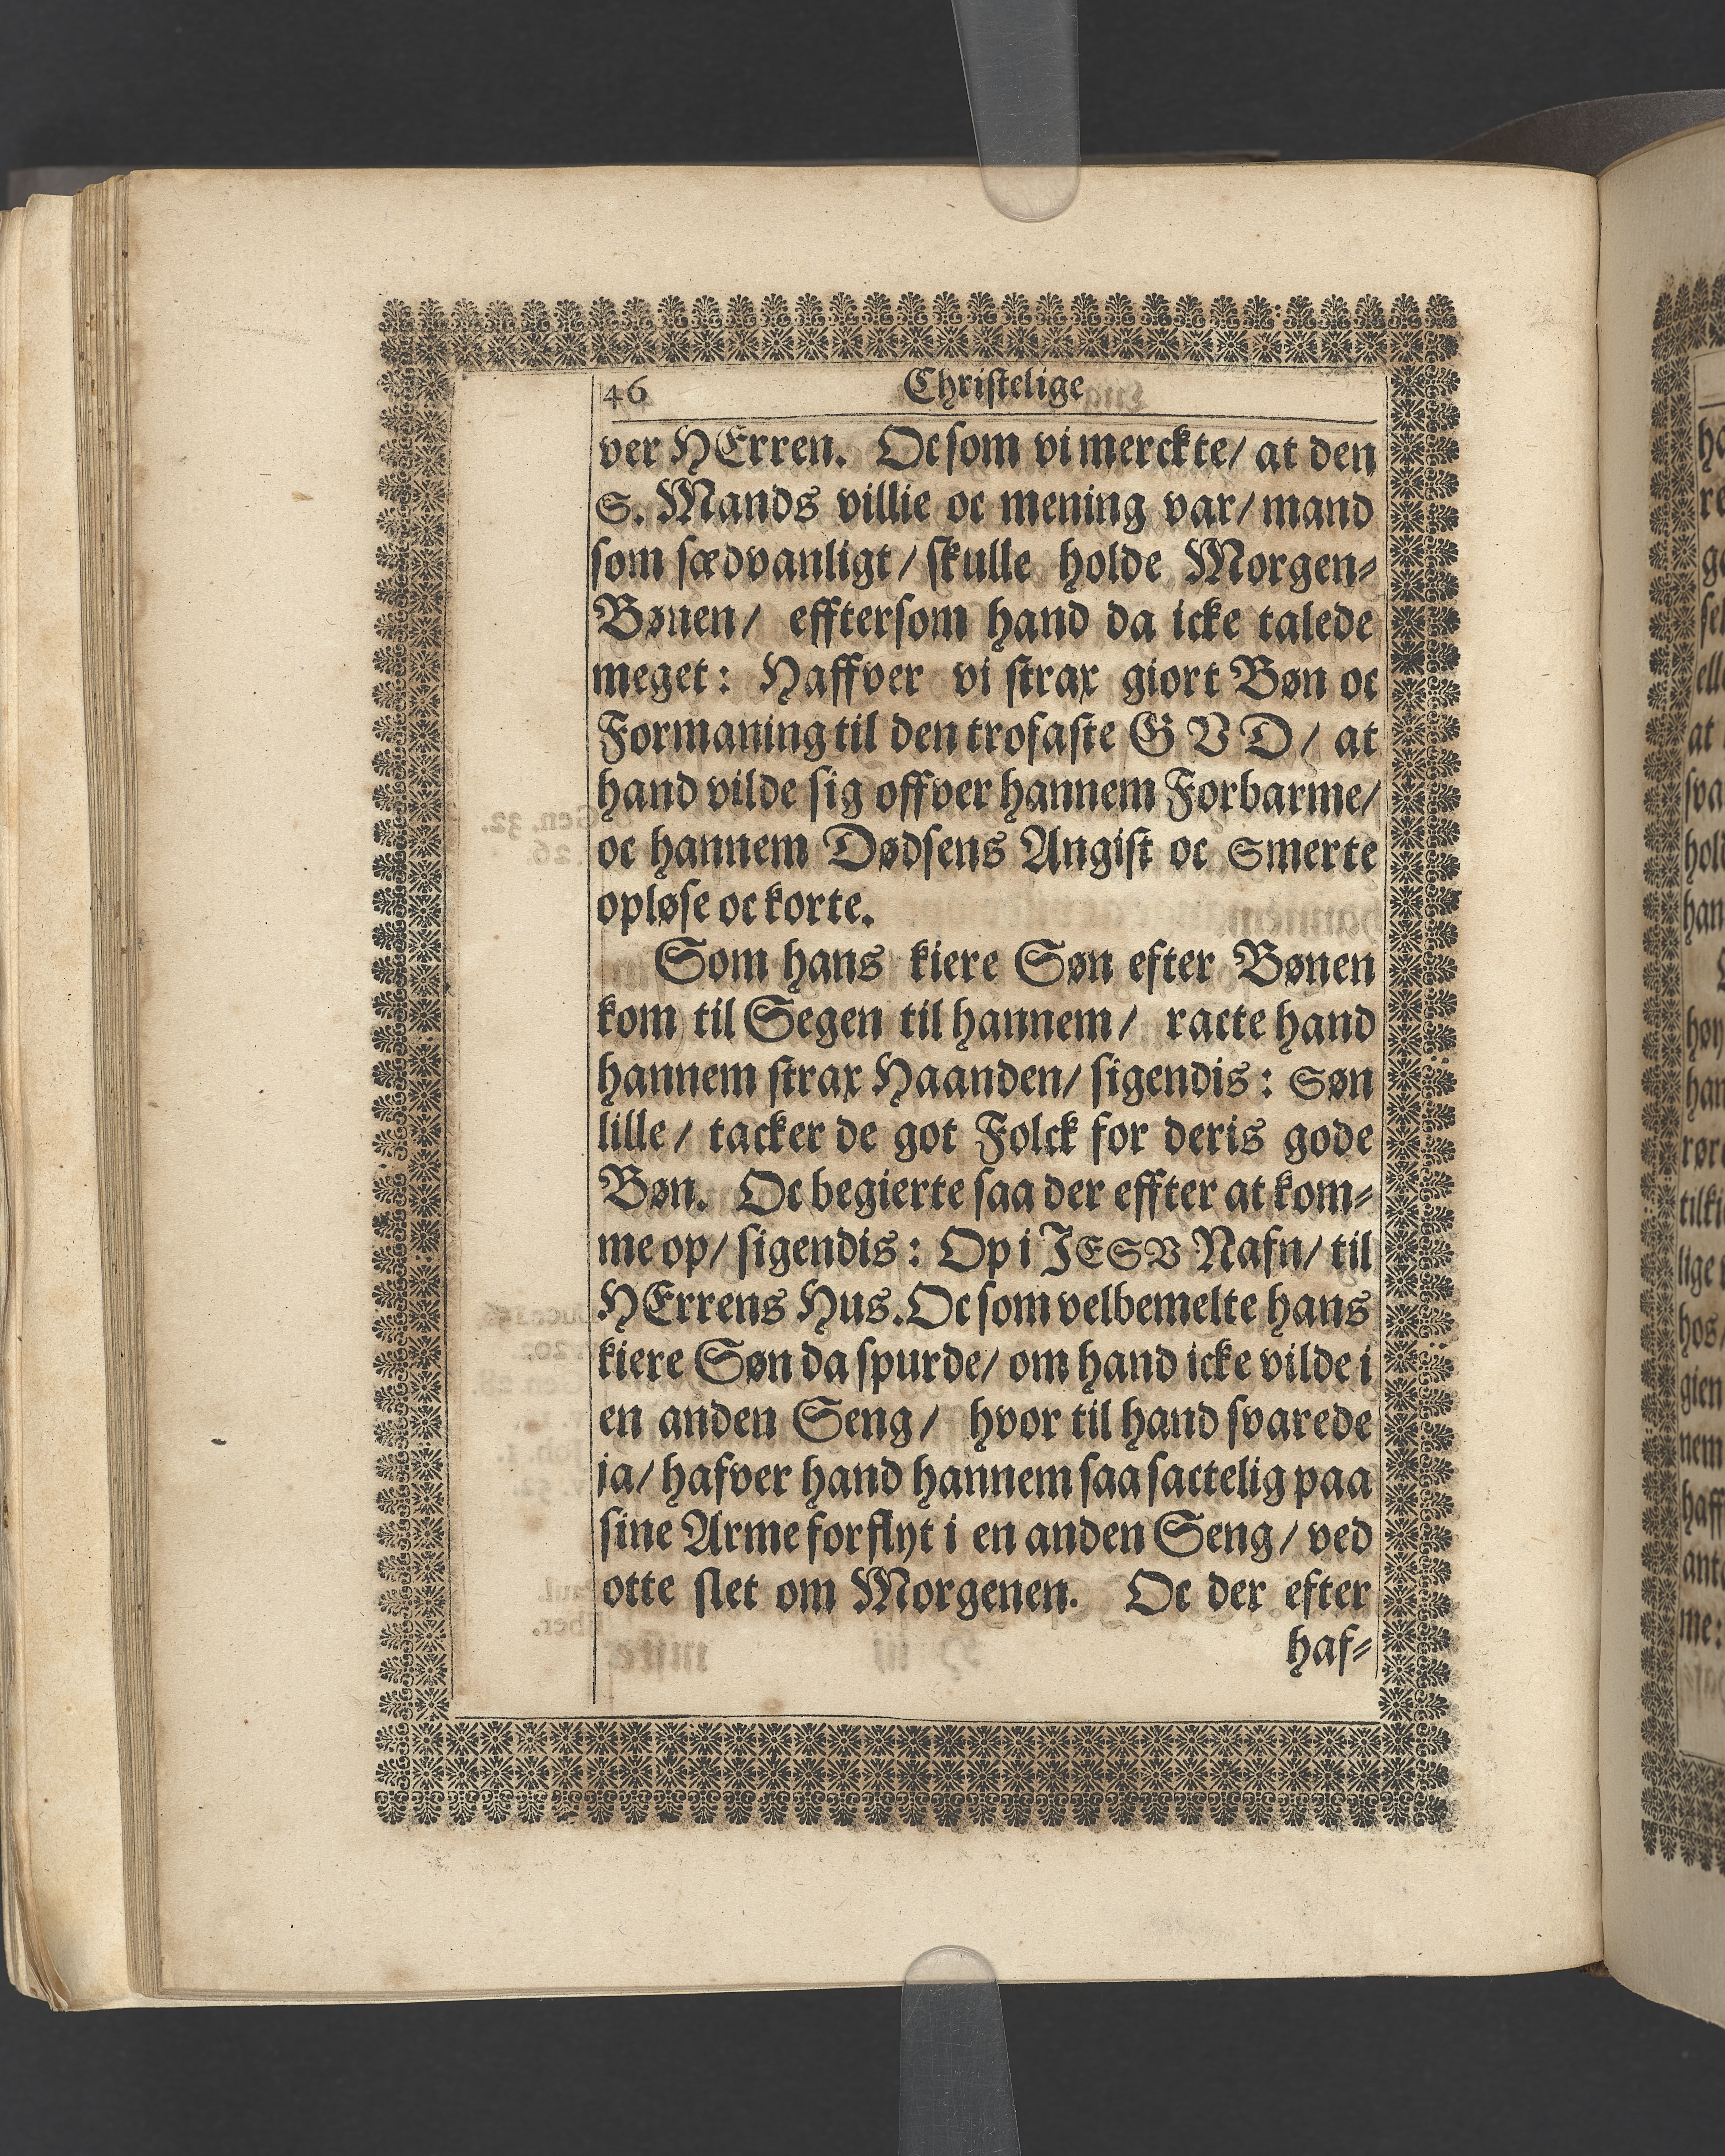 46 Christelige
ver HErren. Oc som vi merckte/ at den
S. Mands villie oc mening var/ mand
som sædvanligt/ skulle holde Morgen-
Bønen/ efftersom hand da icke talede
meget: Haffver vi strax giort Bøn oc
Formaning til den trofaste GVD/ at
hand vilde sig offver hannem Forbarme/
oc hannem Dødsens Angist oc Smerte
opløse oc korte.
Som hans kiere Søn efter Bønen
kom til Segen til hannem/ racte hand
hannem strax Haanden/ sigendis: Søn
lille/ tacker de got Folck for deris gode
Bøn. Oc begierte saa der effter at kom-
me op/ sigendis: Op i JESV Nafn/ til
HErrens Hus. Oc som velbemelte hans
kiere Søn da spurde/ om hand icke vilde i
en anden Seng/ hvor til hand svarede
ja/ hafver hand hannem saa sactelig paa
sine Arme forflyt i en anden Seng/ ved
otte slet om Morgenen. Oc der efter
haf-